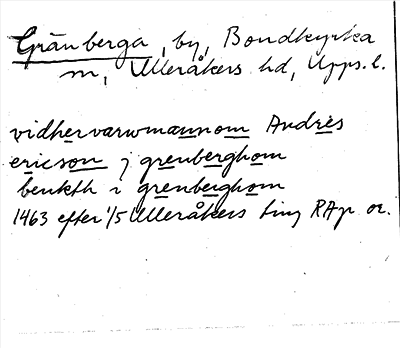 Gränberga, by, Bondkyrka
sn, Ulleråkers hd, Upps. l.
vidhervarwmannom Andrès
ericson j grenberghom
benkth i grenberghom
1463 efter 1/5 Ulleråkers ting RAp or.